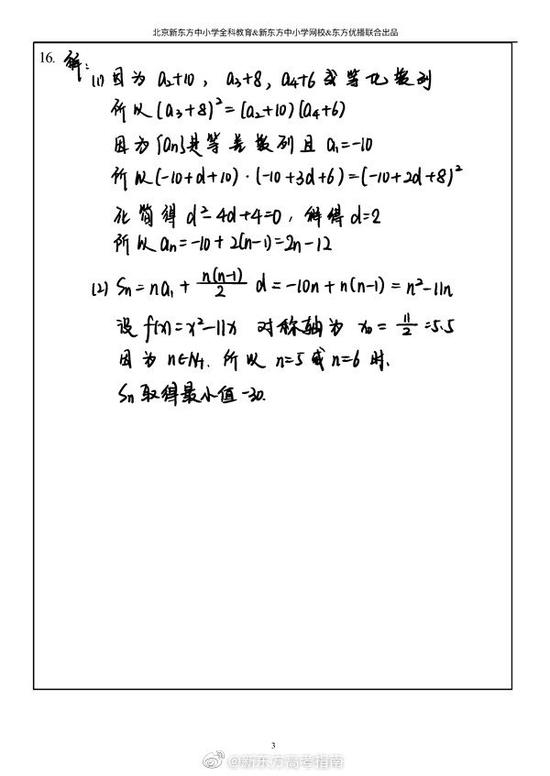 北京新东方中小学全科教育&新东方中小学网校&东方优播联合出品
16. 解:
(1) 因为 a₂+10, a₃+8, a₄+6 成等比数列
所以 (a₃+8)²=(a₂+10)(a₄+6)
因为{an}是等差数列且 a₁=-10
所以(-10+d+10)·(-10+3d+6)=(-10+2d+8)²
化简得 d²-4d+4=0, 解得 d=2
所以 an=-10+2(n-1)=2n-12
(2) Sn=na₁+n(n-1)/2 d=-10n+n(n-1)=n²-11n
设 f(x)=x²-11x 对称轴为 x₀=11/2=5.5
因为 n∈N+, 所以 n=5 或 n=6 时,
Sn 取得最小值-30.
3
@新东方高考指南